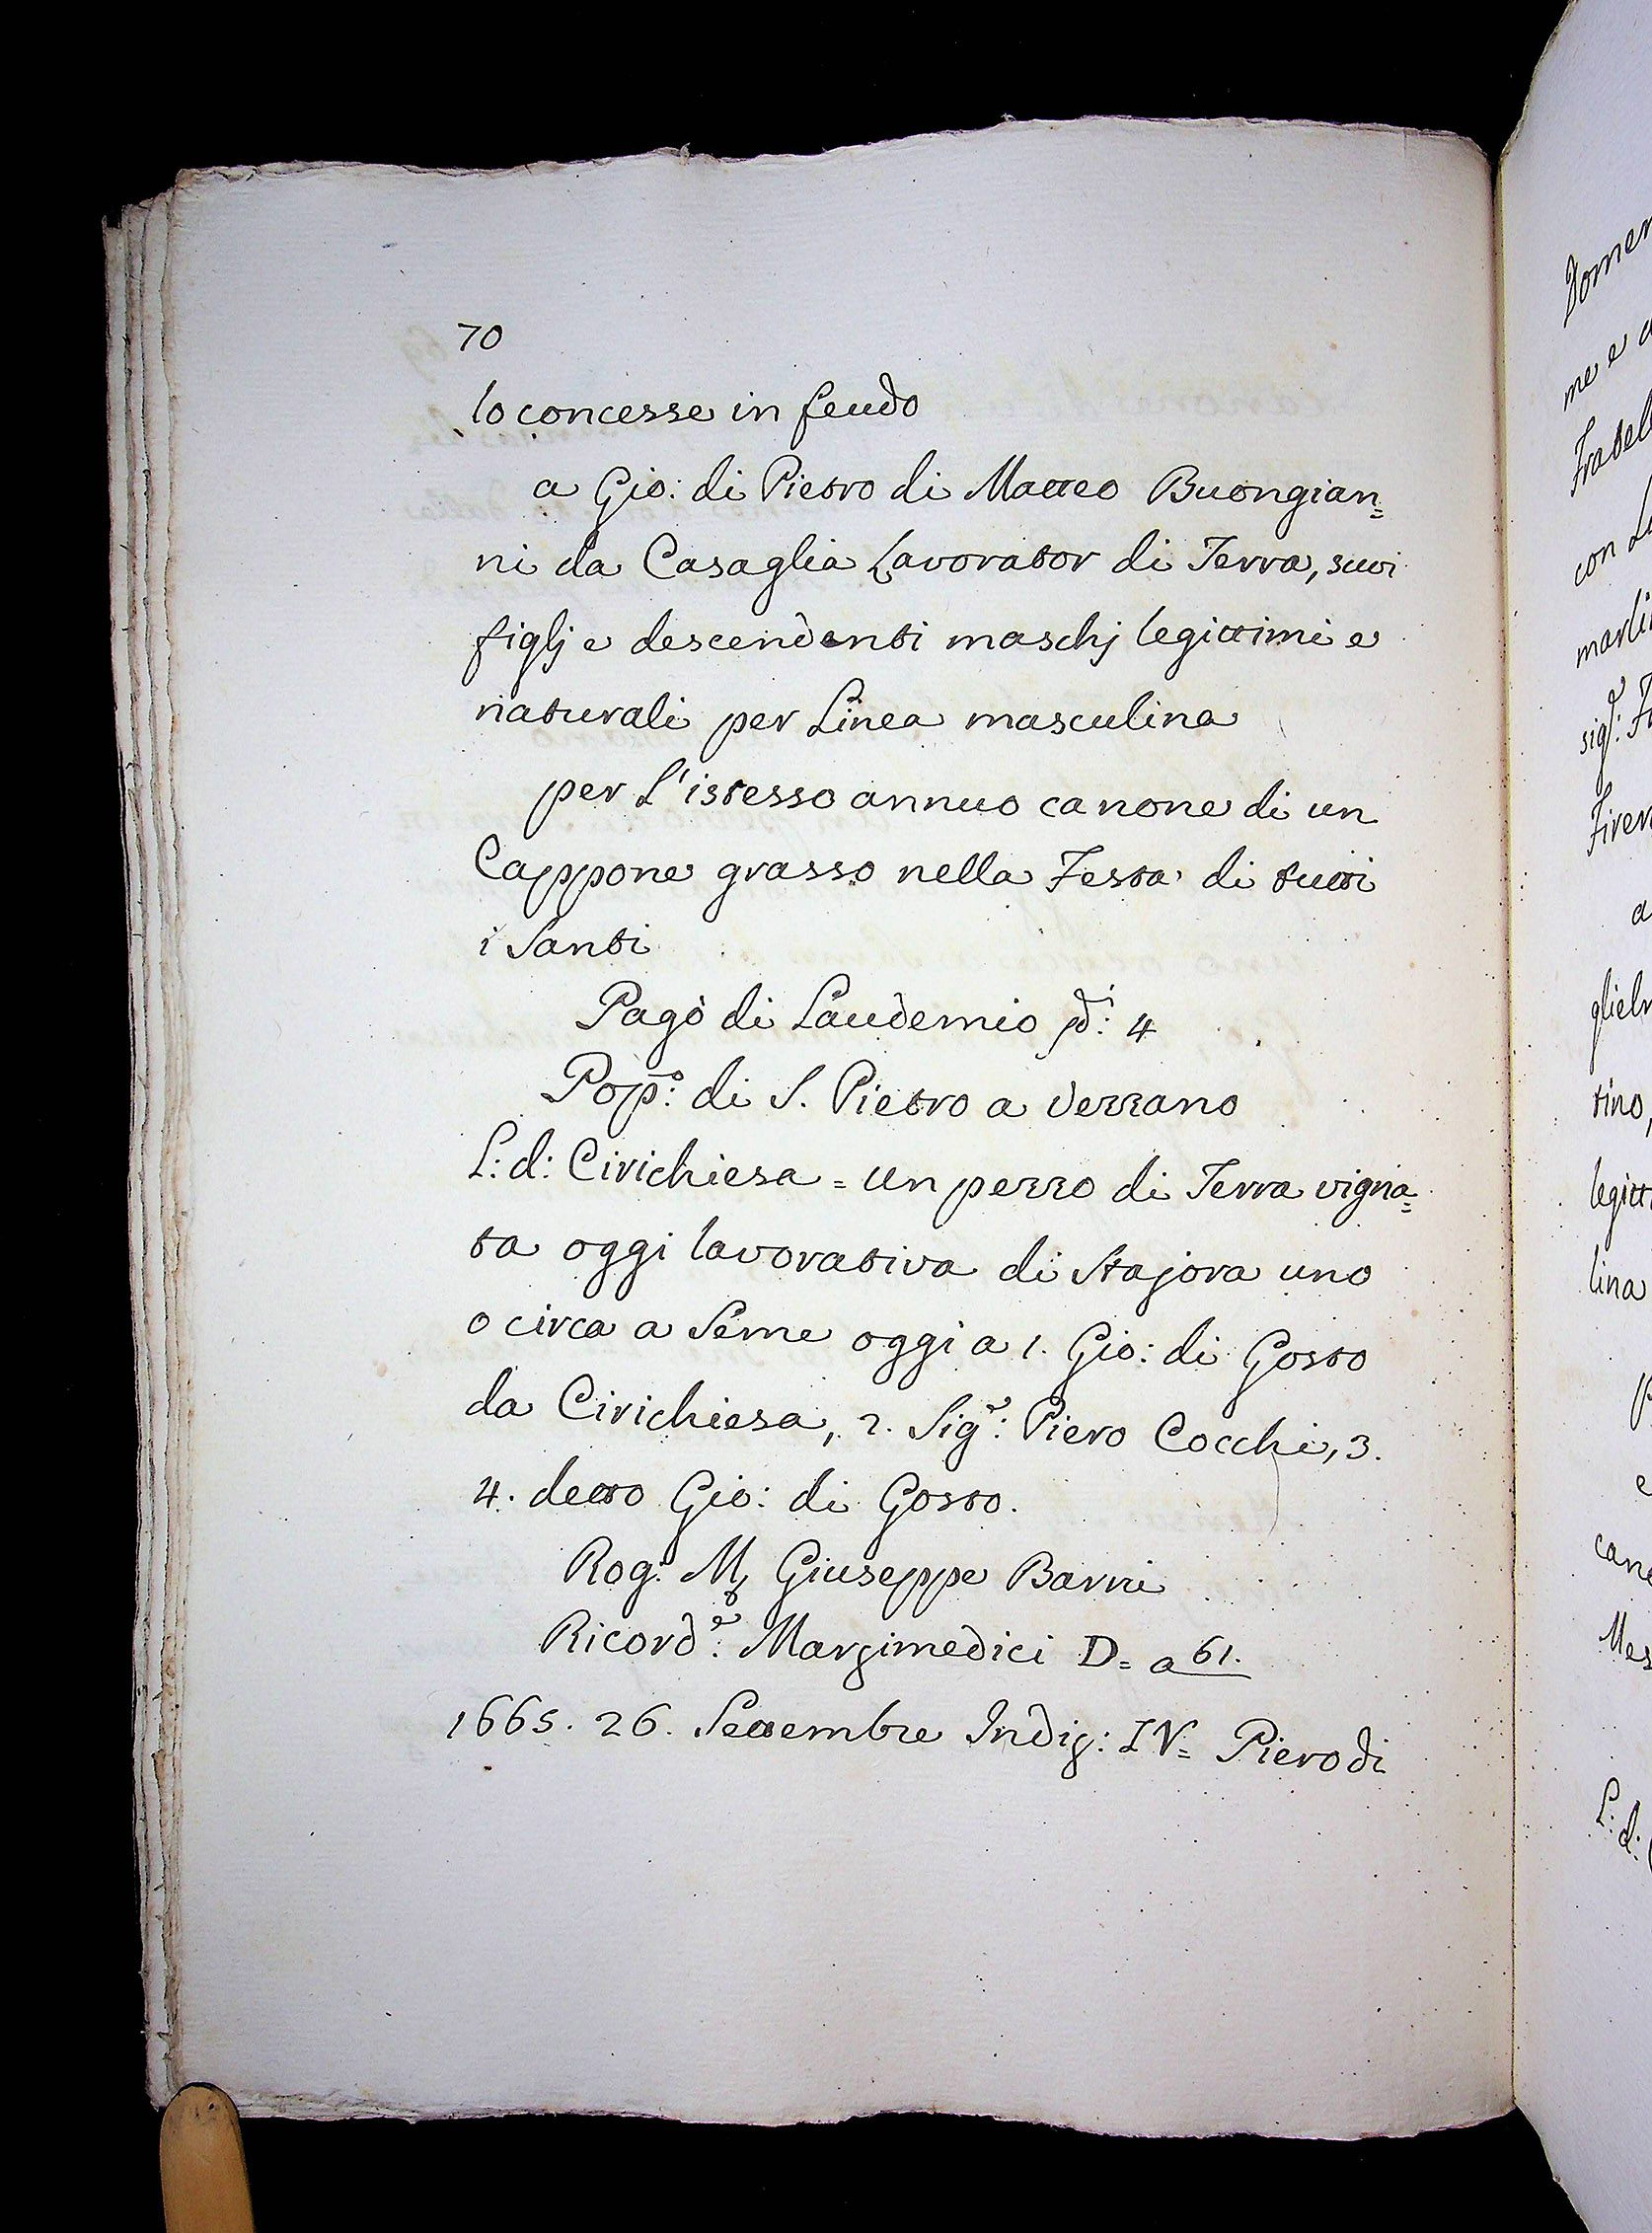 70
lo concesse in feudo
a Gio: di Pietro di Matteo Buongian=
ni da Casaglia Lavorator di Terra, suoi
figlj e descendenti maschj legittimi e
naturali per Linea masculina
per l'istesso annuo canone di un
Cappone grasso nella Festa di tutti
i Santi
Pagò di Laudemio 4
Pop.o: di S. Pietro a Vezzano
L: d: Cirichiesa = Un pezzo di Terra vigna=
ta oggi lavorativa di Stajora uno
o circa a Seme oggi a 1. Gio: di Gosto
da Cirichiesa, 2. Sig.e: Piero Cocchi, 3.
4. detto Gio: di Gosto.
Rog: Giuseppe Barni
Ricord.e: Marzimedici D= a 61.
1665. 26. Settembre Indiz: IV= Piero di
Domen
me e
Fratell
con
marli
sig.e:
Firen
a
gliel
tino,
legitt
lina
p
e
cano
Mes
L: d: